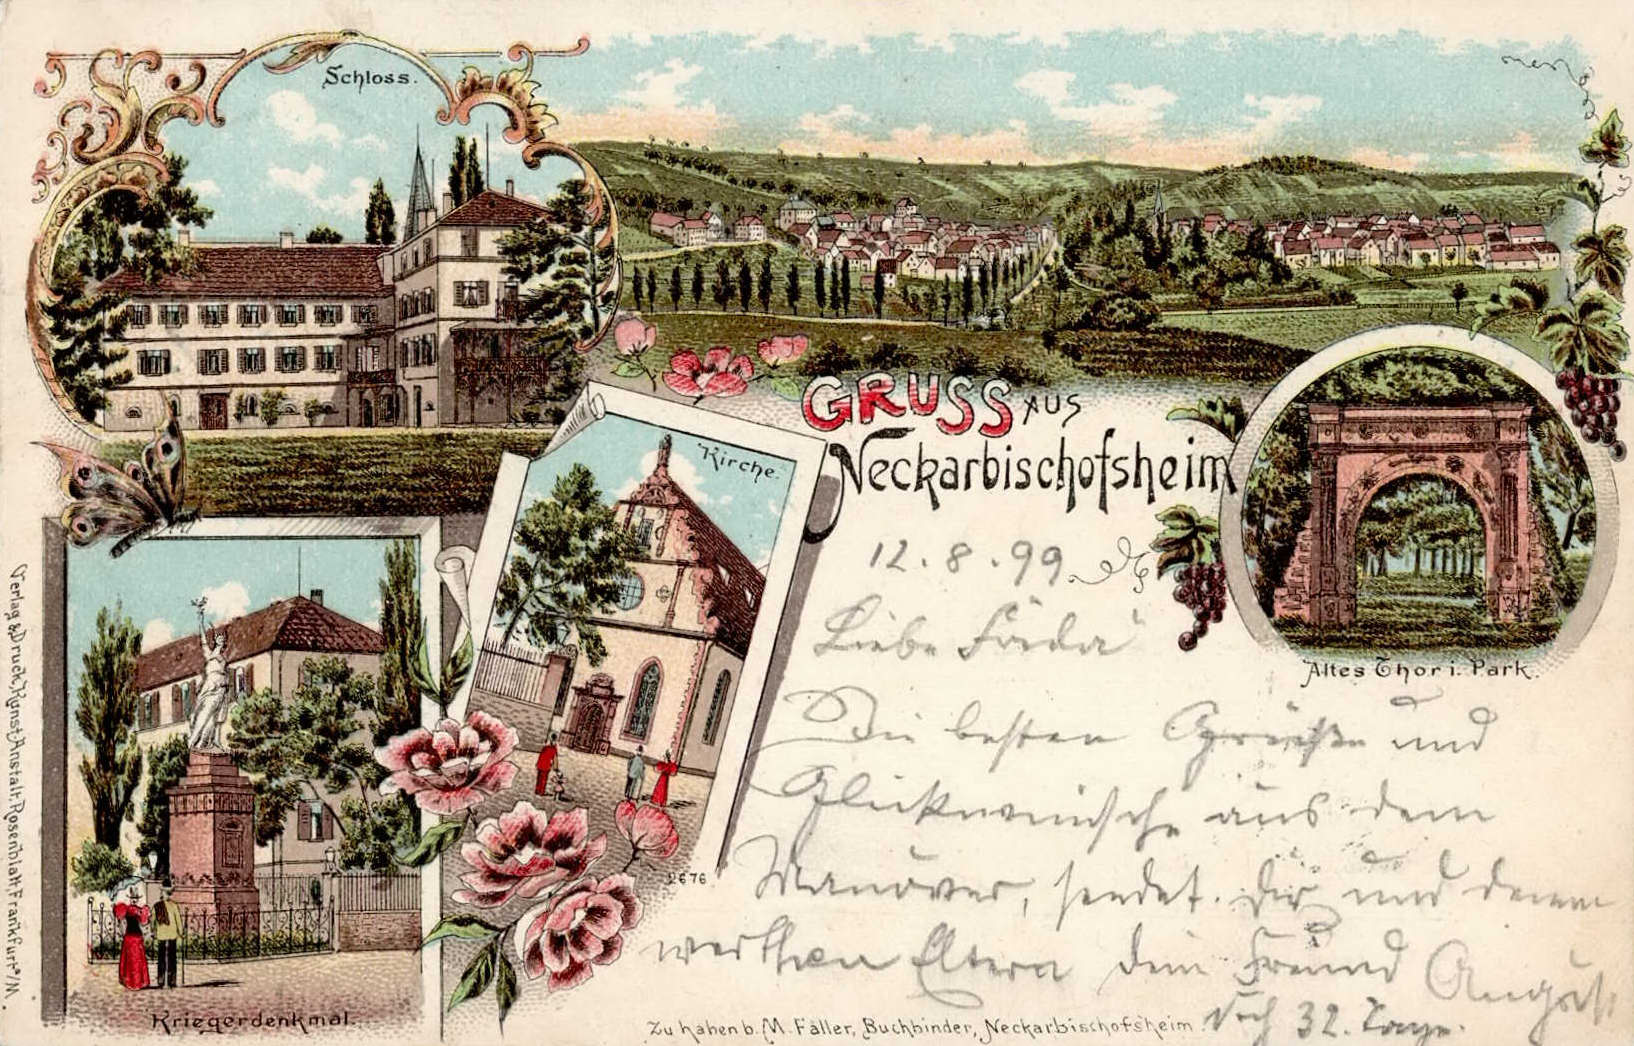 Schloss.
GRUSS AUS
Neckarbischofsheim
Kirche.
12.8.99.
Altes Thor i. Park.
Liebe Frieda
Die besten Grüße und
Glückwünsche aus dem
Manöver, sendet Dir und deinen
werthen Eltern dein Freund August
Noch 32. Tage.
2676
Kriegerdenkmal.
Zu haben b. M. Faller, Buchbinder, Neckarbischofsheim
Verlag & Druck, Kunst-Anstalt, Rosenblatt, Frankfurt a/M.